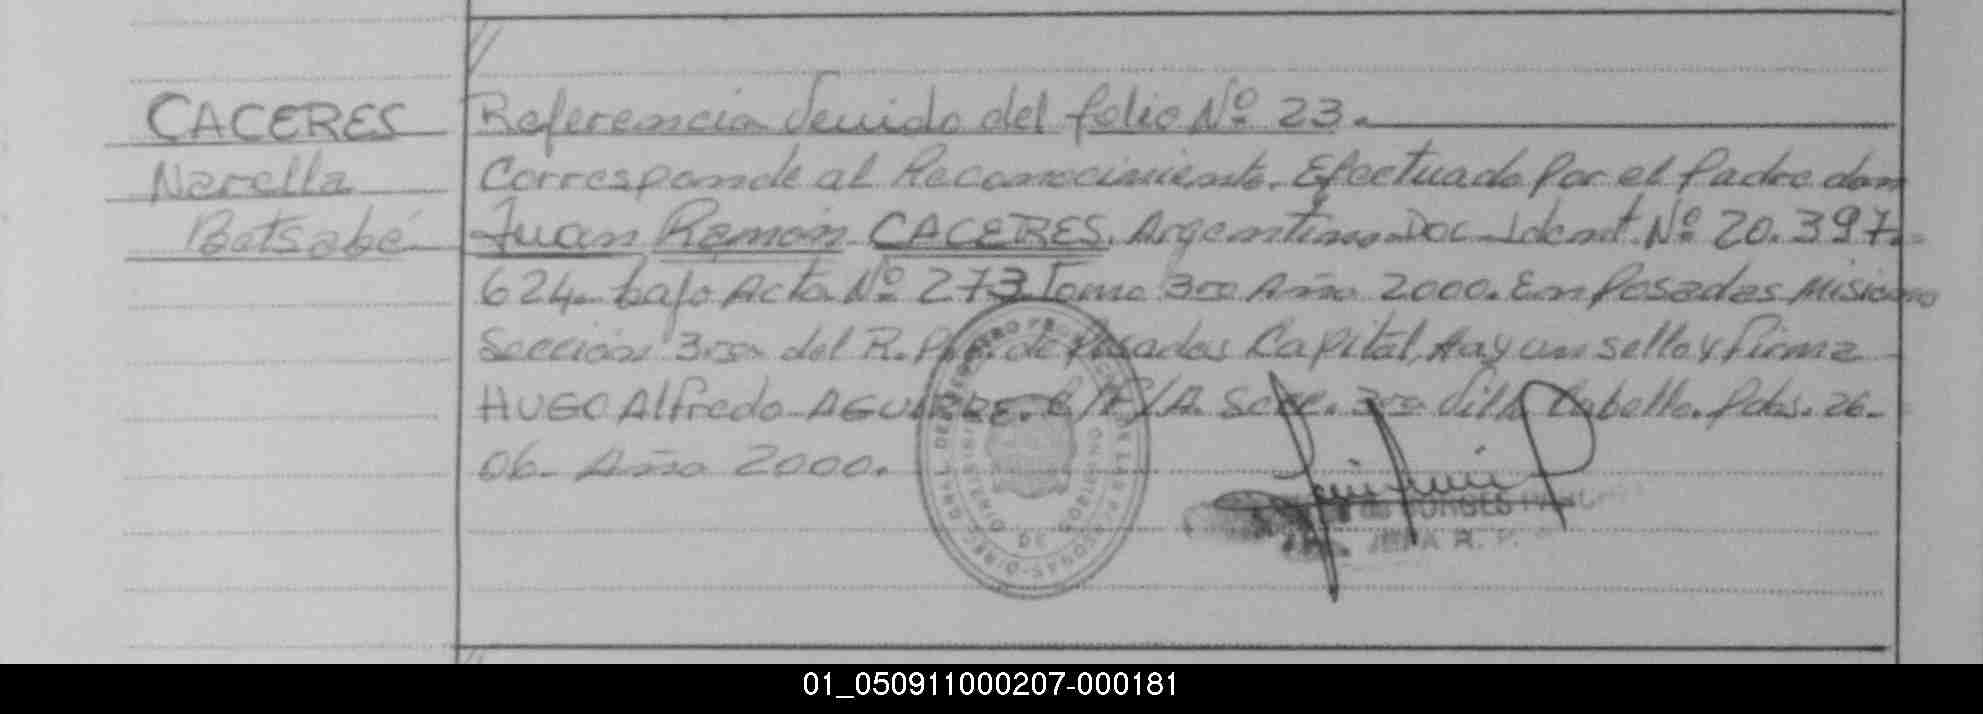 CACERES
Narella
Betsabé
Referencia Venido del folio Nº 23.
Corresponde al Reconocimiento. Efectuado Por el Padre don
Juan Ramón CACERES. Argentino Doc Ident. Nº 20.397.
624. bajo Acta Nº 273 Tomo 3ro Año 2000. En Posadas Misiones
Sección 3ra del R. de Posadas Capital, Hay un sello y firma
HUGO Alfredo AGUIRRE. Secc. 3ra Villa Cabello. Pdas. 26-
06- Año 2000.
JEFA R. P.
01_050911000207-000181